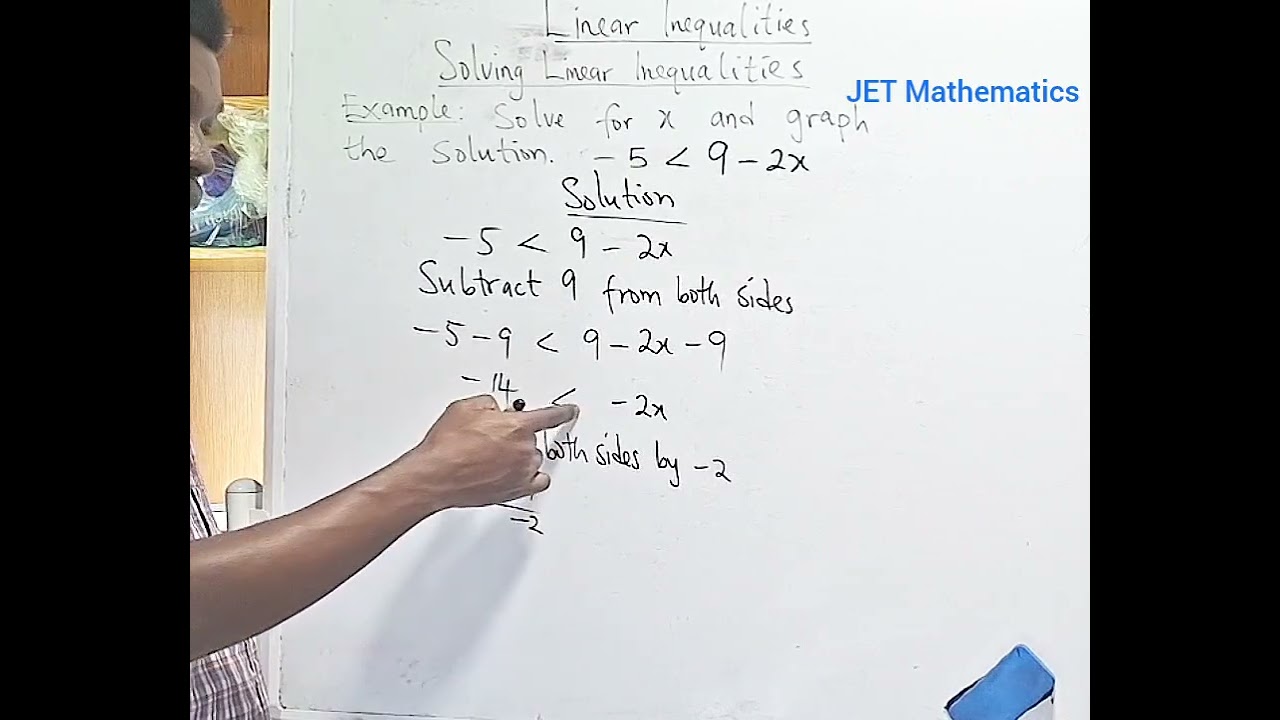 Linear Inequalities
Solving Linear Inequalities
JET Mathematics
Example: Solve for x and graph
the solution. -5 < 9 - 2x
Solution
-5 < 9 - 2x
Subtract 9 from both sides
-5 - 9 < 9 - 2x - 9
-14 < -2x
both sides by -2
-2